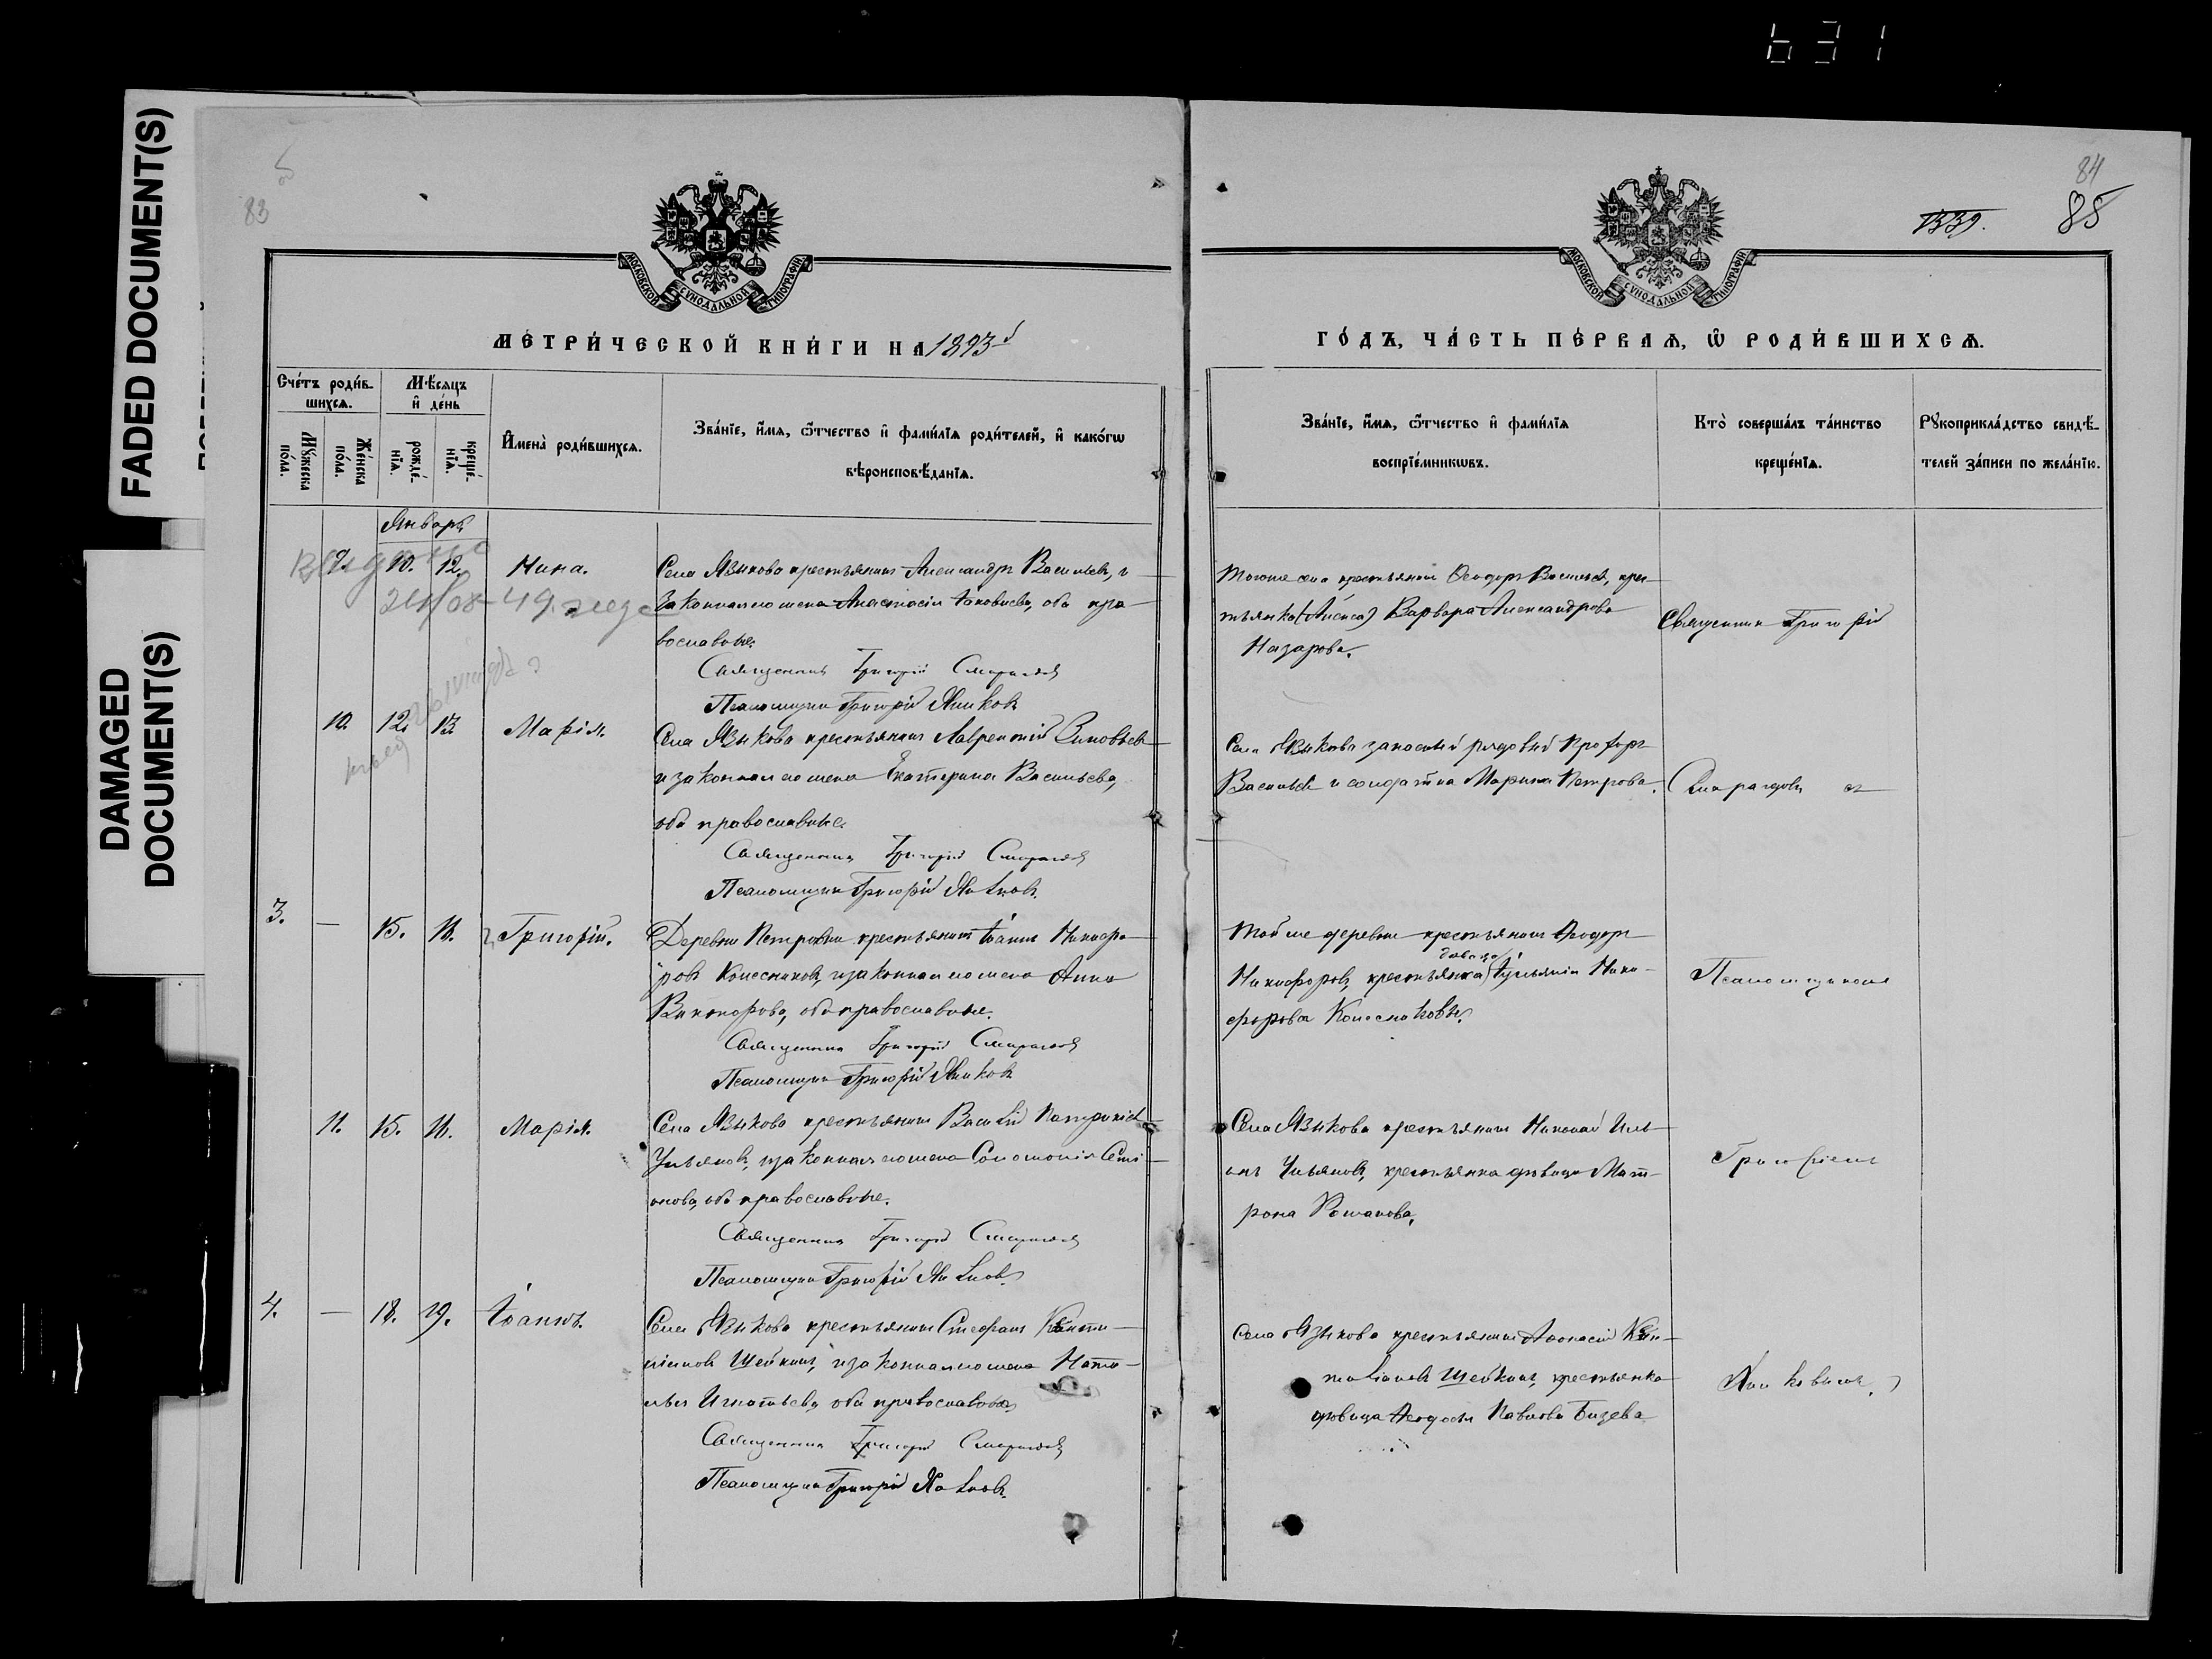 631
FADED DOCUMENT(S)
DAMAGED
DOCUMENT(S)
83
84
85
1339.
МОСКОВСКОЙ СѴНОДАЛЬНОЙ ТИПОГРАФІИ
МОСКОВСКОЙ СѴНОДАЛЬНОЙ ТИПОГРАФІИ
МЕТРИ́ЧЕСКОЙ КНИ́ГИ НА 1893й
ГО́ДЪ, ЧА́СТЬ ПЕ́РВАѦ, Ѡ҆ РОДИ́ВШИХСѦ.
Сче́тъ роди́в-
шихсѧ.
Мꙋ́жеска по́ла.
Же́нска по́ла.
Мѣ́сѧцъ
и҆ де́нь
рожде́-
нїѧ.
креще́-
нїѧ.
И҆мена̀ роди́вшихсѧ.
Зва́нїе, и҆́мѧ, ѻ҆́тчество и҆ фами́лїѧ роди́телей, и҆ како́гѡ
вѣроисповѣ́данїѧ.
Зва́нїе, и҆́мѧ, ѻ҆́тчество и҆ фами́лїѧ
воспрїе́мникѡвъ.
Кто̀ соверша́лъ та́инство
креще́нїѧ.
Рꙋкоприкла́дство свидѣ́-
телей за́писи по жела́нїю.
Январь
9. 10. 12. Нина.
Села Языкова крестьянинъ Александръ Васильевъ, и
законная жена Анастасія Іаковлева, оба пра-
вославные.
Священникъ Григорій Смарагдовъ
Псаломщикъ Григорій
Тогоже села крестьянинъ Ѳеодоръ Васильевъ, крес-
тьянка Варвара Александрова
Назарова.
Священникъ Григорій
10. 12. 13. Марія.
Села Языкова крестьянинъ Лаврентій Зиновьевъ
и законная жена Екатерина Васильева,
оба православные.
Священникъ Григорій Смарагдовъ
Псаломщикъ Григорій
Села Языкова запасный рядовый Прохоръ
Васильевъ и солдатка Марина Петрова.
Смарагдовъ съ
3. — 15. 16. Григорій.
Деревни Петровки крестьянинъ Іоаннъ Никифо-
ровъ Колесниковъ, и законная жена Анна
Викторова, оба православные.
Священникъ Григорій Смарагдовъ
Псаломщикъ Григорій
Той же деревни крестьянинъ Ѳеодоръ
Никифоровъ, крестьянка девица Іуліанія Ники-
форова Колесниковы.
Псаломщикомъ
11. 15. 16. Марія.
Села Языкова крестьянинъ Василій
Ульяновъ, и законная жена Соломонія Семі-
онова, оба православные.
Священникъ Григорій Смарагдовъ
Псаломщикъ Григорій
Села Языкова крестьянинъ Николай Иль-
инъ Ульяновъ, крестьянка девица Мат-
рона Романова.
Григоріемъ
4. — 18. 19. Іоаннъ.
Села Языкова крестьянинъ Стефанъ
Шейкинъ, и законная жена Ната-
лья Игнатьева, оба православные.
Священникъ Григорій Смарагдовъ
Псаломщикъ Григорій
Села Языкова крестьянинъ Аѳанасій
Шейкинъ, крестьянка
девица Ѳеодосія Павлова